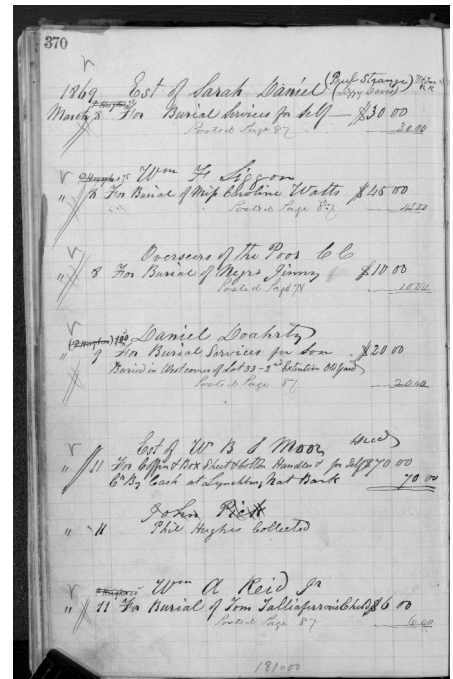 370
1869 Est of Sarah Daniel (Paul Strange)
March 8 For Burial Services for self — $30.00
Posted Page 87 30.00
Wm F Liggon
" 8 For Burial of Miss Caroline Watts $45 00
Posted Page 87 45.00
Overseers of the Poor C C
" 8 For Burial of Negro Jinny $10 00
Posted Page 71 10.00
Daniel Doahrty
" 9 For Burial Services for Son $20 00
Buried in West corner of Lot 33 - 2nd Extention Old Yard
Posted Page 87 20.00
Est of W B S Moor Decd
" 11 For Coffin & Box Sheet & Cotton Handles & for self $70 00
Cr By Cash at Lynchburg Nat Bank 70 00
John
" 11 Phil Hughes Collected
Wm A Reid Jr
" 11 For Burial of Tom Talliaferro's Child $6 00
Posted Page 87 6.00
181.00